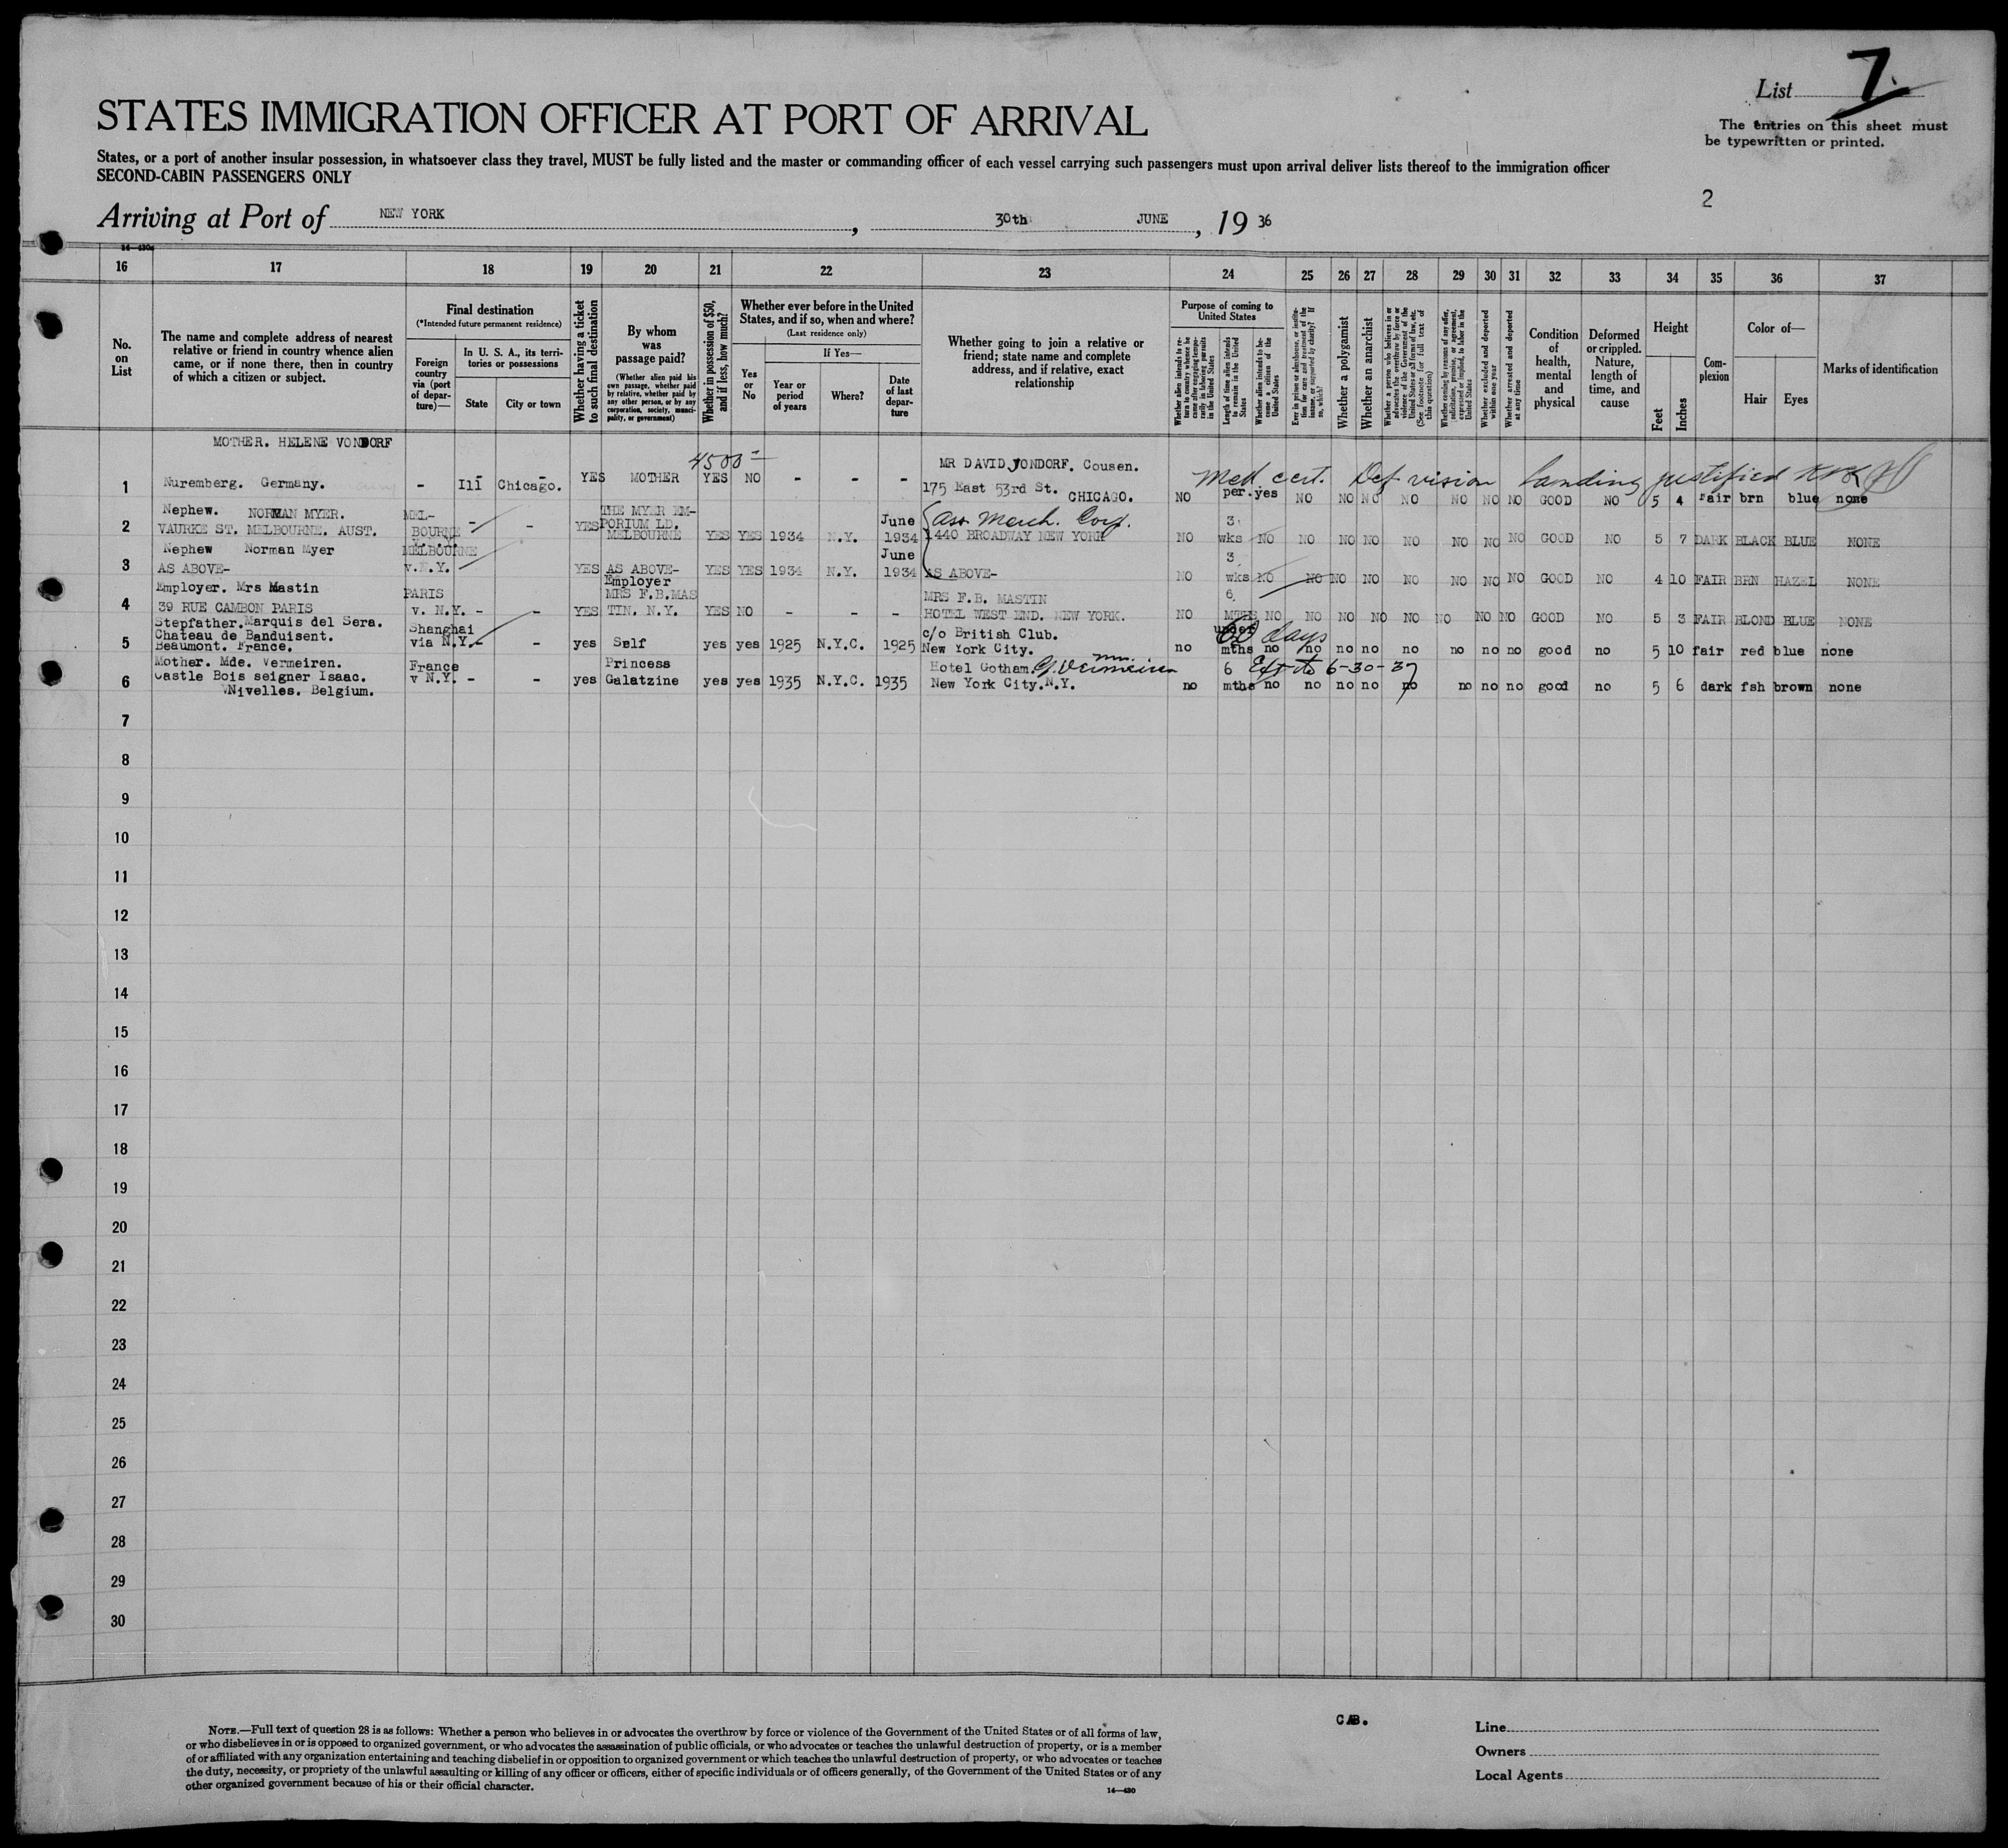 List 7
STATES IMMIGRATION OFFICER AT PORT OF ARRIVAL
The entries on this sheet must
be typewritten or printed.
States, or a port of another insular possession, in whatsoever class they travel, MUST be fully listed and the master or commanding officer of each vessel carrying such passengers must upon arrival deliver lists thereof to the immigration officer
SECOND-CABIN PASSENGERS ONLY
2
Arriving at Port of NEW YORK, 30th JUNE, 19 36
16 17 18 19 20 21 22 23 24 25 26 27 28 29 30 31 32 33 34 35 36 37
No. on List
The name and complete address of nearest relative or friend in country whence alien came, or if none there, then in country of which a citizen or subject.
Final destination
(*Intended future permanent residence)
Foreign country via (port of departure)—
In U. S. A., its territories or possessions
State
City or town
Whether having a ticket to such final destination
By whom was passage paid?
(Whether alien paid his own passage, whether paid by relative, whether paid by any other person, or by any corporation, society, municipality, or government)
Whether in possession of $50, and if less, how much?
Whether ever before in the United States, and if so, when and where?
(Last residence only)
Yes or No
If Yes—
Year or period of years
Where?
Date of last departure
Whether going to join a relative or friend; state name and complete address, and if relative, exact relationship
Purpose of coming to United States
Whether alien intends to return to country whence he came after engaging temporarily in laboring pursuits in the United States
Length of time alien intends to remain in the United States
Whether alien intends to become a citizen of the United States
Ever in prison or almshouse, or institution for care and treatment of the insane, or supported by charity? If so, which?
Whether a polygamist
Whether an anarchist
Whether a person who believes in or advocates the overthrow by force or violence of the Government of the United States or all forms of law, etc. (See footnote for full text of this question)
Whether coming by reason of any offer, solicitation, promise, or agreement, expressed or implied, to labor in the United States
Whether excluded and deported within one year
Whether arrested and deported at any time
Condition of health, mental and physical
Deformed or crippled. Nature, length of time, and cause
Height
Feet
Inches
Complexion
Color of—
Hair
Eyes
Marks of identification
MOTHER. HELENE VONDORF
4500
MR DAVID JONDORF. Cousen.
Med cert. Def vision Landing justified
1 Nuremberg. Germany. - Ill Chicago. YES MOTHER YES NO - - - 175 East 53rd St. CHICAGO. NO per. yes NO NO NO NO NO NO NO GOOD NO 5 4 fair brn blue none
Nephew. NORMAN MYER. MEL- THE MYER EM- June Ass. Merch. Corp. 3
2 VAURKE ST. MELBOURNE. AUST. BOURNE - - YES PORIUM LD. MELBOURNE YES YES 1934 N.Y. 1934 1440 BROADWAY NEW YORK NO wks NO NO NO NO NO NO NO NO GOOD NO 5 7 DARK BLACK BLUE NONE
Nephew Norman Myer MELBOURNE June 3
3 AS ABOVE- v.N.Y. YES AS ABOVE- YES YES 1934 N.Y. 1934 AS ABOVE- NO wks NO NO NO NO NO NO NO NO GOOD NO 4 10 FAIR BRN HAZEL NONE
Employer. Mrs Mastin PARIS Employer MRS F.B.MAS MRS F.B. MASTIN 6
4 39 RUE CAMBON PARIS v. N.Y. - - YES TIN. N.Y. YES NO - - - HOTEL WEST END. NEW YORK. NO MTHS NO NO NO NO NO NO NO NO GOOD NO 5 3 FAIR BLOND BLUE NONE
Stepfather. Marquis del Sera.
Chateau de Banduisent. Shanghai c/o British Club. under 60 days
5 Beaumont. France. via N.Y.- - yes Self yes yes 1925 N.Y.C. 1925 New York City. no mths no no no no no no no no good no 5 10 fair red blue none
Mother. Mde. Vermeiren. France Princess Hotel Gotham. Mr. G. Vermeiren 6 Ext to 6-30-37
6 Castle Bois seigner Isaac. v N.Y. - - yes Galatzine yes yes 1935 N.Y.C. 1935 New York City. N.Y.
Nivelles. Belgium. no mths no no no no no no no no good no 5 6 dark fsh brown none
7
8
9
10
11
12
13
14
15
16
17
18
19
20
21
22
23
24
25
26
27
28
29
30
NOTE.—Full text of question 28 is as follows: Whether a person who believes in or advocates the overthrow by force or violence of the Government of the United States or of all forms of law,
or who disbelieves in or is opposed to organized government, or who advocates the assassination of public officials, or who advocates or teaches the unlawful destruction of property, or is a member
of or affiliated with any organization entertaining and teaching disbelief in or opposition to organized government or which teaches the unlawful destruction of property, or who advocates or teaches
the duty, necessity, or propriety of the unlawful assaulting or killing of any officer or officers, either of specific individuals or of officers generally, of the Government of the United States or of any
other organized government because of his or their official character.
14—430
CAB.
Line
Owners
Local Agents